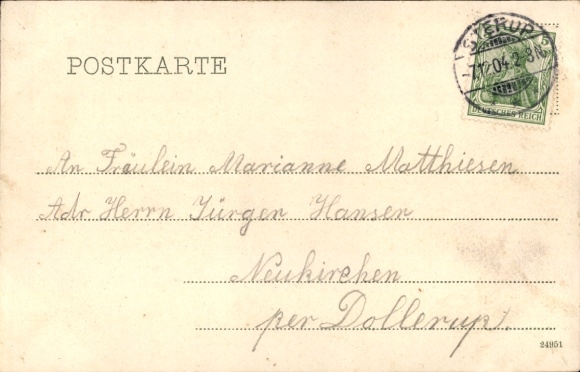 STERUP
7.1.04.2-3N
POSTKARTE
DEUTSCHES REICH
An Fräulein Marianne Matthiesen
Adr Herrn Jürgen Hansen
Neukirchen
per Dollerup.
24951